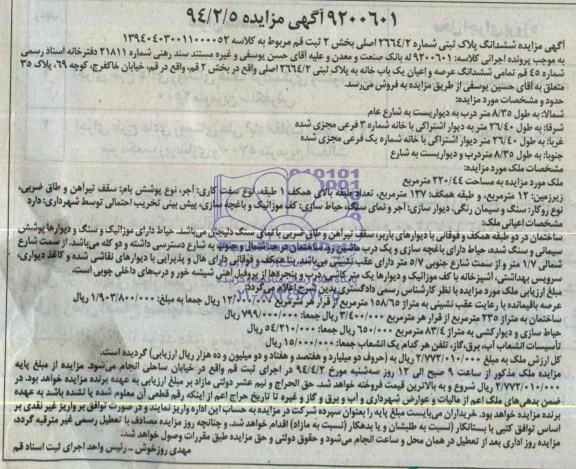 ۹۲۰۰۶۰۱آگهی مزایده ۹۴/۲/۵
آگهی مزایده ششدانگ پلاک ثبتی شماره ۲۶۶۴/۲ اصلی بخش ۲ ثبت قم مربوط به کلاسه ۱۳۹۴۰۴۰۳۰۰۱۱۰۰۰۰۵۲
به موجب پرونده اجرائی کلاسه: ۹۲۰۰۶۰۱ له بانک صنعت و معدن و علیه آقای حسن یوسفی و غیره مستند سند رهنی شماره ۲۱۸۱۱ دفترخانه اسناد رسمی
شماره ۴۵ قم تمامی ششدانگ عرصه و اعیان یک باب خانه به پلاک ثبتی ۲۶۶۴/۲ اصلی واقع در بخش ۲ قم، واقع در قم، خیابان خاکفرج، کوچه ۶۹، پلاک ۳۵
متعلق به آقای حسین یوسفی از طریق مزایده به فروش می‌رسد.
حدود و مشخصات مورد مزایده:
شمالا: به طول ۸/۳۵ متر درب به دیواریست به شارع عام
شرقا: به طول ۲۶/۴۰ متر به دیوار اشتراکی با خانه شماره ۳ فرعی مجزی شده
غربا: به طول ۲۶/۴۰ متر دیوار اشتراکی با خانه شماره یک فرعی مجزی شده
جنوبا: به طول ۸/۳۵متر درب و دیواریست به شارع
مشخصات ملک مورد مزایده:
ملک مورد مزایده به مساحت ۲۲۰/۴۴ مترمربع
زیرزمین: ۱۲ مترمربع، و طبقه همکف: ۱۳۷ مترمربع، تعداد طبقه بالای همکف ۱ طبقه، نوع سفت کاری: آجر، نوع پوشش بام: سقف تیرآهن و طاق ضربی،
نوع روکار: سنگ و سیمان رنگی، دیوار سازی: آجر و نمای سنگ، حیاط سازی: کف موزائیک و باغچه سازی، پیش بینی تخریب احتمالی توسط شهرداری: دارد
مشخصات اعیانی ملک:
ساختمان در دو طبقه همکف و فوقانی با دیوارهای باربر، سقف تیرآهن و طاق ضربی با نمای سنگ دلیجان می‌باشد. حیاط دارای موزائیک و سنگ و دیوارها پوشش
سیمانی و سنگ شده، حیاط دارای باغچه سازی و یک درب ماشین رو، ساختمان در حد شمال و جنوب به شارع دسترسی داشته و دو کله می‌باشد. از سمت شارع
شمالی ۱/۷ متر و از سمت شارع جنوبی ۵/۷ متر دارای عقب نشینی می‌باشد. بنا همکف و فوقانی دارای هال و پذیرایی با دیوارهای نقاشی شده و کاغذ دیواری،
سرویس بهداشتی، آشپزخانه با کف موزائیک و دیوارها یک متر کاشی، درب و پنجره‌ها از پروفیل آهنی شیشه خور و درب‌های داخلی چوبی است.
مبلغ ارزیابی ملک مورد مزایده با نظر کارشناس رسمی دادگستری بدین شرح اعلام می‌گردد:
عرصه باقیمانده با رعایت عقب نشینی به متراژ ۱۵۸/۶۵ مترمربع از قرار هر مترمربع ۱۲/۰۰۰/۰۰۰ ریال جمعا به مبلغ: ۱/۹۰۳/۸۰۰/۰۰۰ ریال
ساختمان به متراژ ۲۳۵ مترمربع از قرار هر مترمربع ۳/۴۰۰/۰۰۰ ریال جمعا: ۷۹۹/۰۰۰/۰۰۰ ریال
حیاط سازی و دیوارکشی به متراژ ۸۳/۴ مترمربع ۶۵۰/۰۰۰ ریال جمعا: ۵۴/۲۱۰/۰۰۰ ریال
تأسیسات انشعاب آب، برق،گاز، تلفن هر کدام یک انشعاب جمعا: ۱۵/۰۰۰/۰۰۰ ریال
کل ارزش ملک به مبلغ ۲/۷۷۲/۰۱۰/۰۰۰ ریال به (حروف دو میلیارد و هفتصد و هفتاد و دو میلیون و ده هزار ریال ارزیابی) گردیده است.
مزایده ملک مذکور از ساعت ۹ صبح الی ۱۲ روز سه‌شنبه مورخ ۹۴/۴/۲ در اجرای ثبت قم واقع در خیابان ساحلی انجام می‌شود. مزایده از مبلغ پایه
۲/۷۷۲/۰۱۰/۰۰۰ ریال شروع و به بالاترین قیمت فروخته خواهد شد. حق الحراج و نیم عشر دولتی مازاد بر مبلغ ارزیابی به عهده برنده مزایده خواهد بود. در
ضمن بدهی‌های ملک اعم از مالیات و عوارض شهرداری و آب و برق و گاز و غیره تا تاریخ حراج اعم از اینکه رقم قطعی آن معلوم شده یا نشده باشد به عهده
برنده مزایده خواهد بود. خریداران می‌بایست مبلغ پایه را بعنوان سپرده شرکت در مزایده به حساب این اداره واریز نمایند و در صورت توافق بر واریز غیر نقدی بر
اساس توافق کتبی با بستانکار (نسبت به طلبشان و یا بدهکار (نسبت به مازاد) اقدام خواهد شد. و چنانچه روز مزایده مصادف با تعطیل رسمی غیر مترقبه گردد،
مزایده روز اداری بعد از تعطیل در همان محل و ساعت انجام می‌شود و حقوق دولتی و حق مزایده طبق مقررات وصول خواهد شد.
مهدی روزخوش – رئیس واحد اجرای ثبت اسناد قم